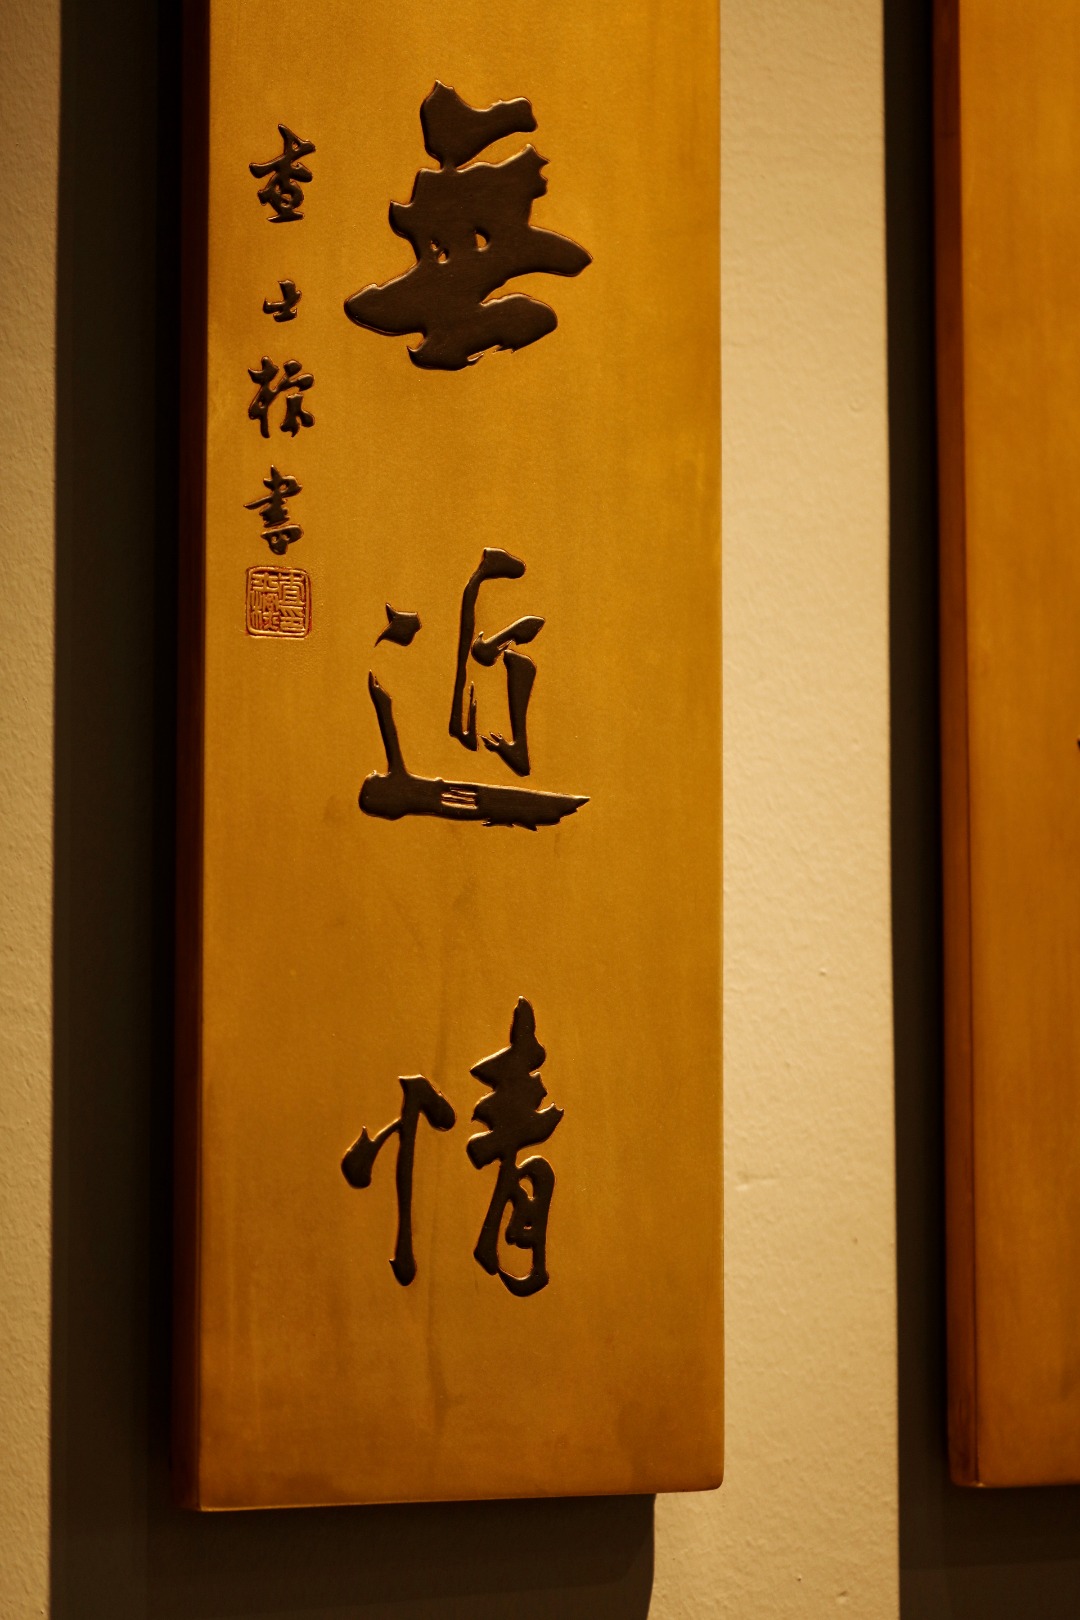 無近情
查士標書